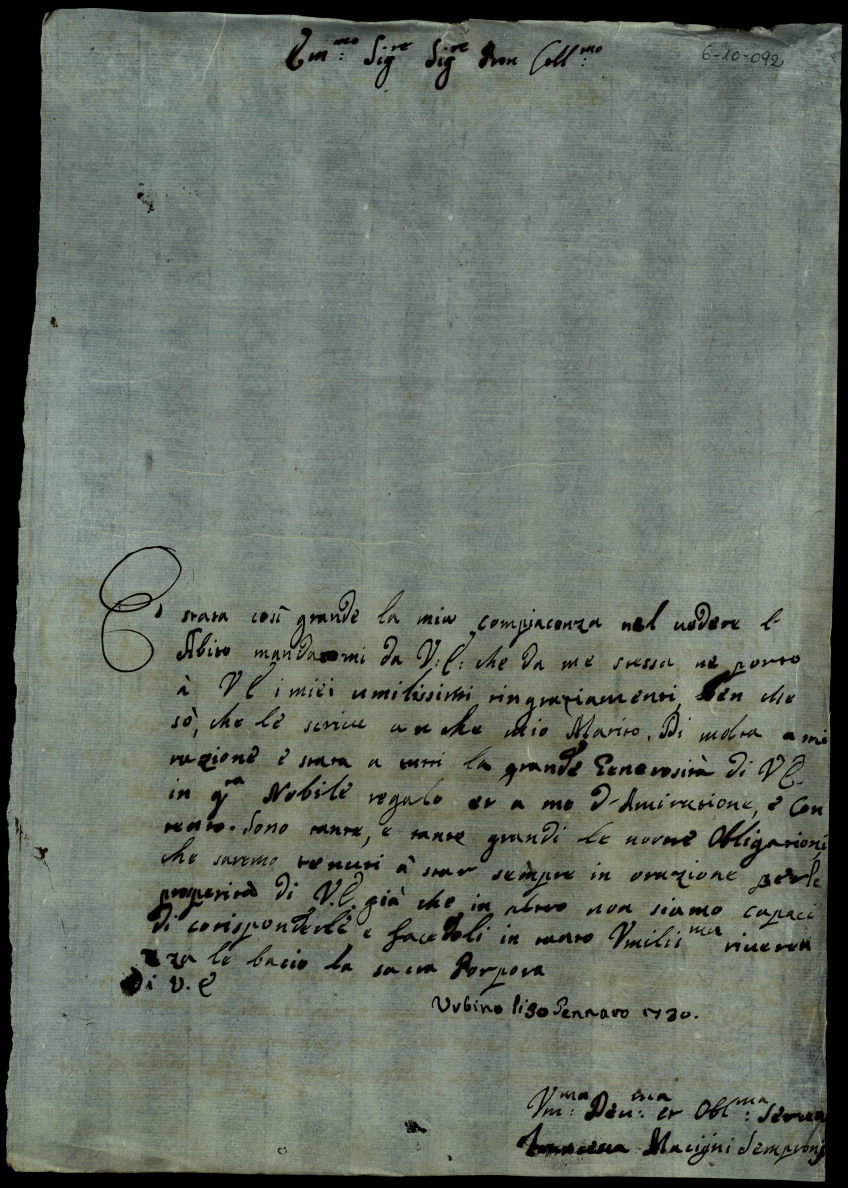 Em:mo Sigre Sigre Pron Coll:mo
6-10-092
E' stata così grande la mia compiacenza nel uedere l'
Abito mandatomi da V: E: che da me stessa ne porto
à VE i miei umilissimi ringraziamenti, ben che
sò, che le scriue anche mio Marito. Di molta ami
razione è stata a tutti la grande Generosità di VE
in qta Nobile regalo et a me d'Amirazione, è Con
tento. Sono tante, e tante grandi le nostre Obligazioni
che saremo tenuti à star sempre in orazione per le
prosperità di V.E. già che in altro non siamo capaci
di corisponderle e facedoli in tanto Vmiliima riueren
za le bacio la sacra Porpora
Di V. E
Vrbino li 30 Gennaro 1730.
Vm:ma Deu:ma et Obl:ma Serua
Francesca Macigni Semproni